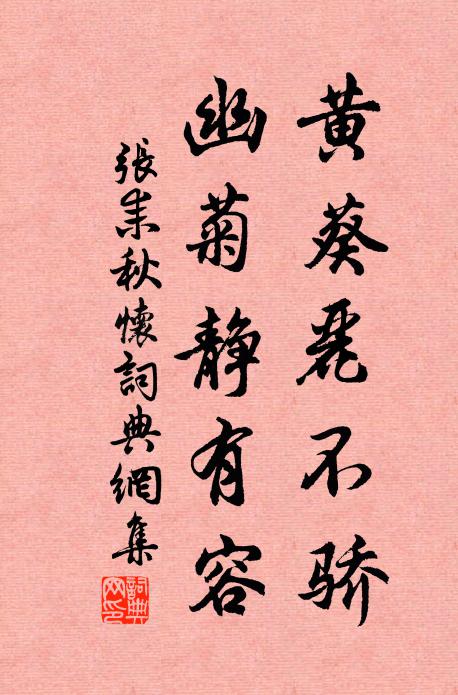 黄葵丽不骄
幽菊静有容
張耒秋懷詞典網集
詞典网印